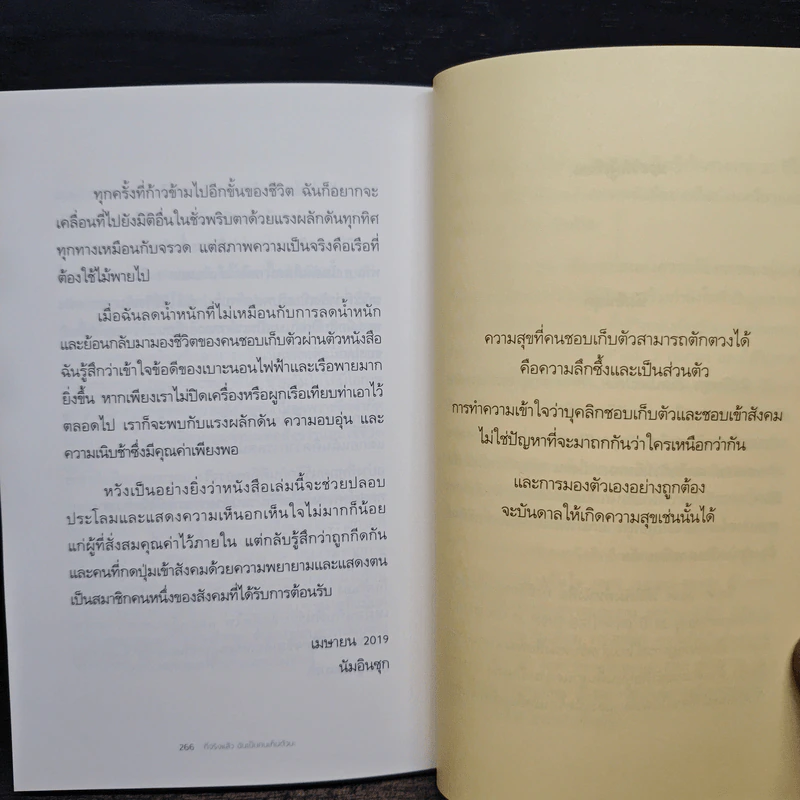 ทุกครั้งที่ก้าวข้ามไปอีกขั้นของชีวิต ฉันก็อยากจะ
เคลื่อนที่ไปยังมิติอื่นในชั่วพริบตาด้วยแรงผลักดันทุกทิศ
ทุกทางเหมือนกับจรวด แต่สภาพความเป็นจริงคือเรือที่
ต้องใช้ไม้พายไป
เมื่อฉันลดน้ำหนักที่ไม่เหมือนกับการลดน้ำหนัก
และย้อนกลับมามองชีวิตของคนชอบเก็บตัวผ่านตัวหนังสือ
ฉันรู้สึกว่าเข้าใจข้อดีของเบาะนอนไฟฟ้าและเรือพายมาก
ยิ่งขึ้น หากเพียงเราไม่ปิดเครื่องหรือผูกเรือเทียบท่าเอาไว้
ตลอดไป เราก็จะพบกับแรงผลักดัน ความอบอุ่น และ
ความเนิบช้าซึ่งมีคุณค่าเพียงพอ
หวังเป็นอย่างยิ่งว่าหนังสือเล่มนี้จะช่วยปลอบ
ประโลมและแสดงความเห็นอกเห็นใจไม่มากก็น้อย
แก่ผู้ที่สั่งสมคุณค่าไว้ภายใน แต่กลับรู้สึกว่าถูกกีดกัน
และคนที่กดปุ่มเข้าสังคมด้วยความพยายามและแสดงตน
เป็นสมาชิกคนหนึ่งของสังคมที่ได้รับการต้อนรับ
เมษายน 2019
นัมอินซุก
266 ที่จริงแล้ว ฉันเป็นคนเก็บตัวนะ
ความสุขที่คนชอบเก็บตัวสามารถตักตวงได้
คือความลึกซึ้งและเป็นส่วนตัว
การทำความเข้าใจว่าบุคลิกชอบเก็บตัวและชอบเข้าสังคม
ไม่ใช่ปัญหาที่จะมาถกกันว่าใครเหนือกว่ากัน
และการมองตัวเองอย่างถูกต้อง
จะบันดาลให้เกิดความสุขเช่นนั้นได้